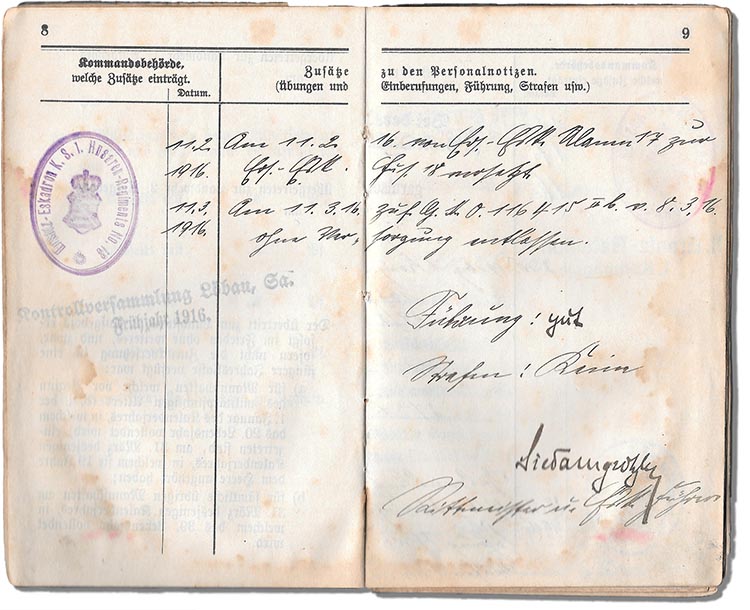 8
9
Kommandobehörde,
welche Zusätze einträgt.
Datum.
Zusätze zu den Personalnotizen.
(Übungen und Einberufungen, Führung, Strafen usw.)
11.2. Am 11. 2. 16. von Ers.-Esk. Ulanen 17 zur
1916. Ers.-Esk. Hus. 18 versetzt
11.3. Am 11. 3. 16. zuf. G. K. O. 116 4 15 IIb. v. 8. 3. 16.
1916. ohne Ver-sorgung entlassen.
Ersatz-Eskadron K. S. 1. Husaren-Regiments No. 18
Kontrollversammlung Löbau, Sa.
Frühjahr 1916.
Führung: gut
Strafen: Keine
Rittmeister u. Esk. führer